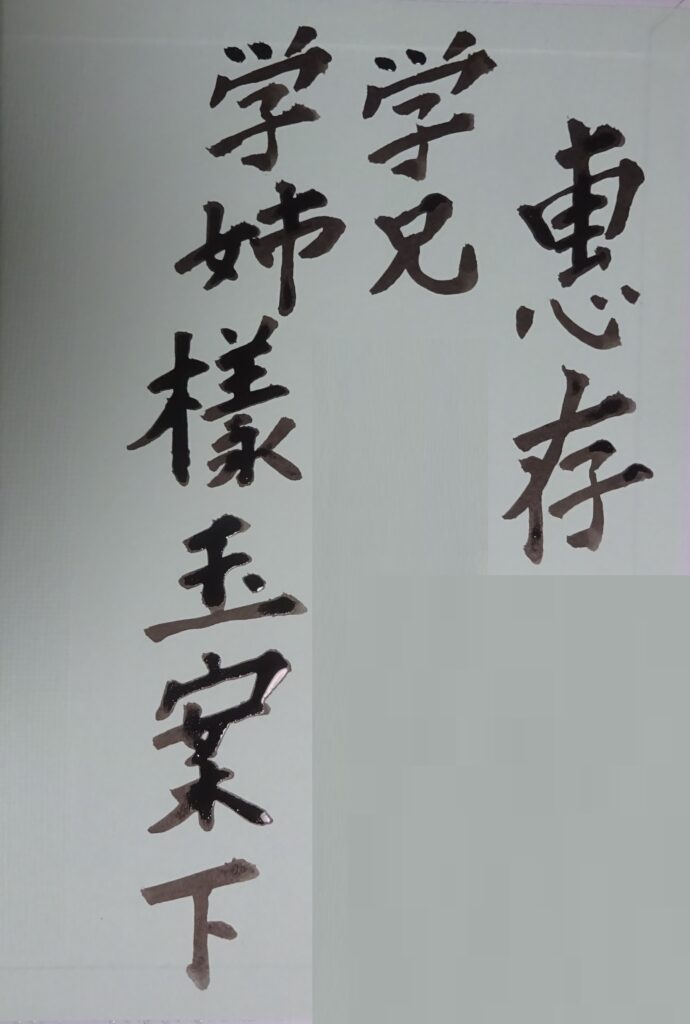 惠存
学兄
学姉樣玉案下